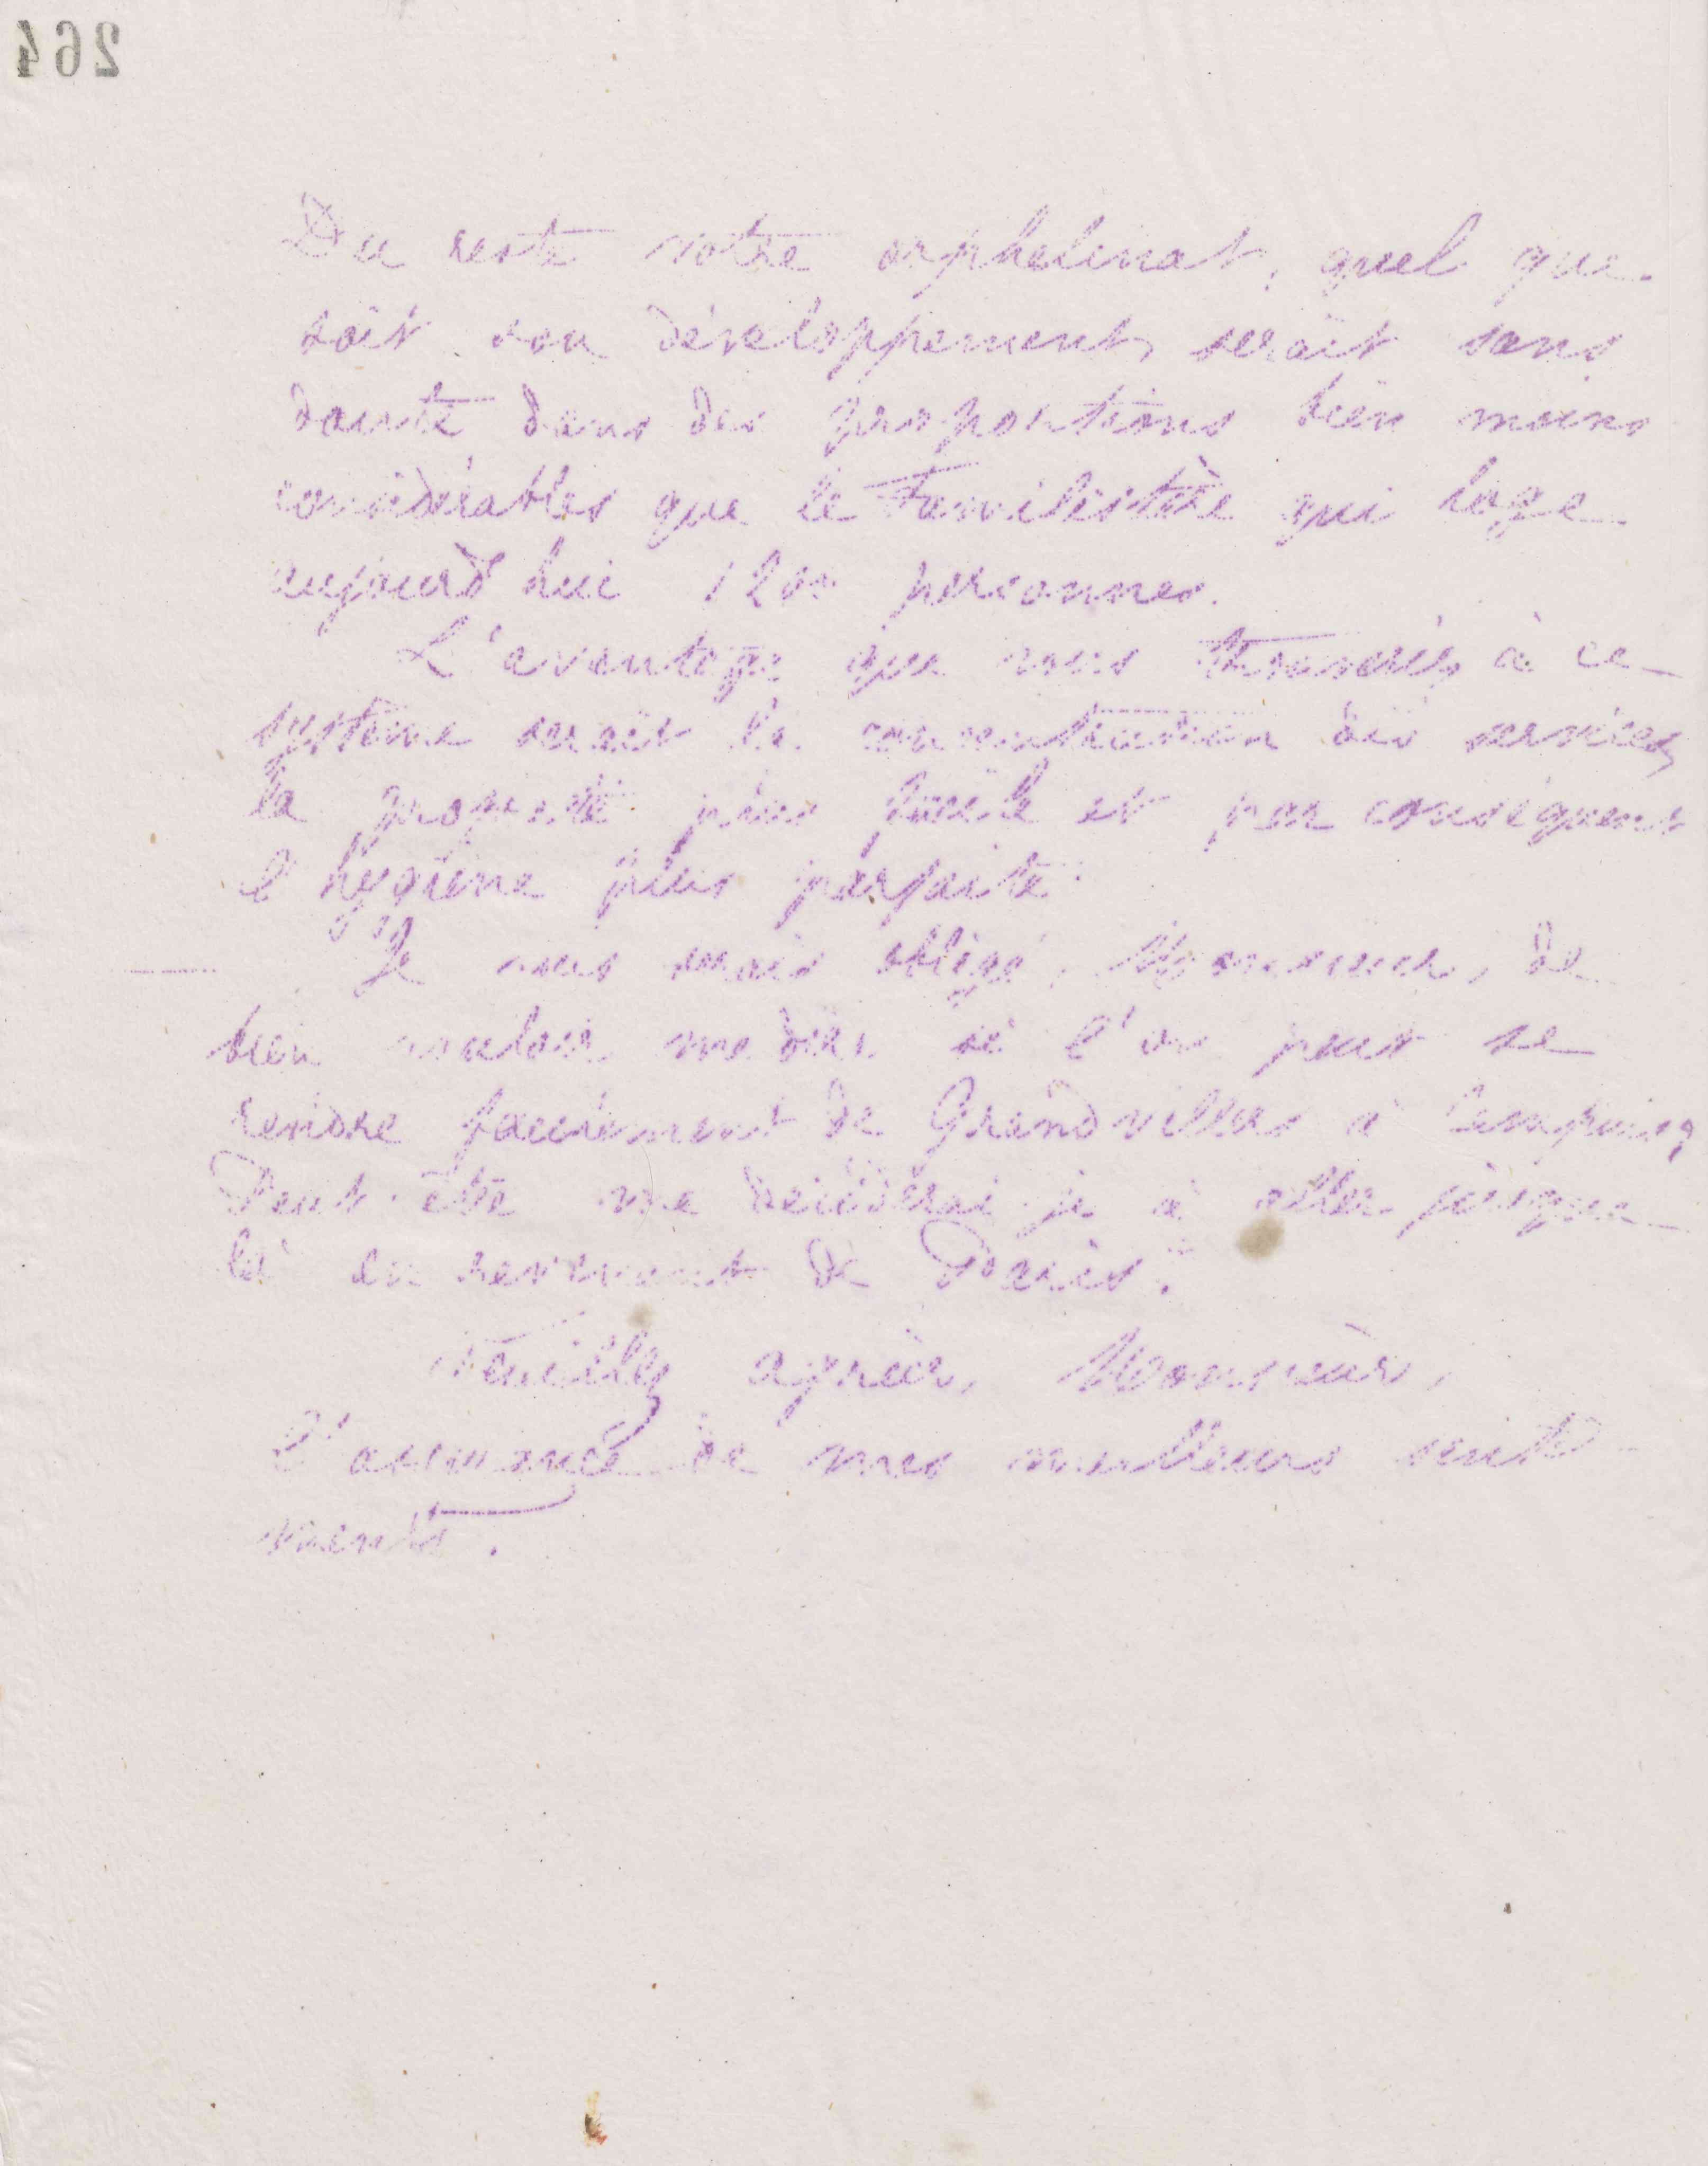 264
Du reste votre orphelinat, quel que
soit son développement, serait sans
doute dans des proportions bien moins
considérables que le Familistère qui loge
aujourd'hui 1200 personnes.
L'avantage que vous trouveriez à ce
système serait la concentration des services
la propreté plus facile et par conséquent
l'hygiène plus parfaite.
Je vous serais obligé, Monsieur, de
bien vouloir me dire si l'on peut se
rendre facilement de Grandvilliers à Cempuis,
Peut-être me déciderai-je à aller jusque
là en revenant de Paris.
Veuillez agréer, Monsieur,
l'assurance de mes meilleurs senti
ments.